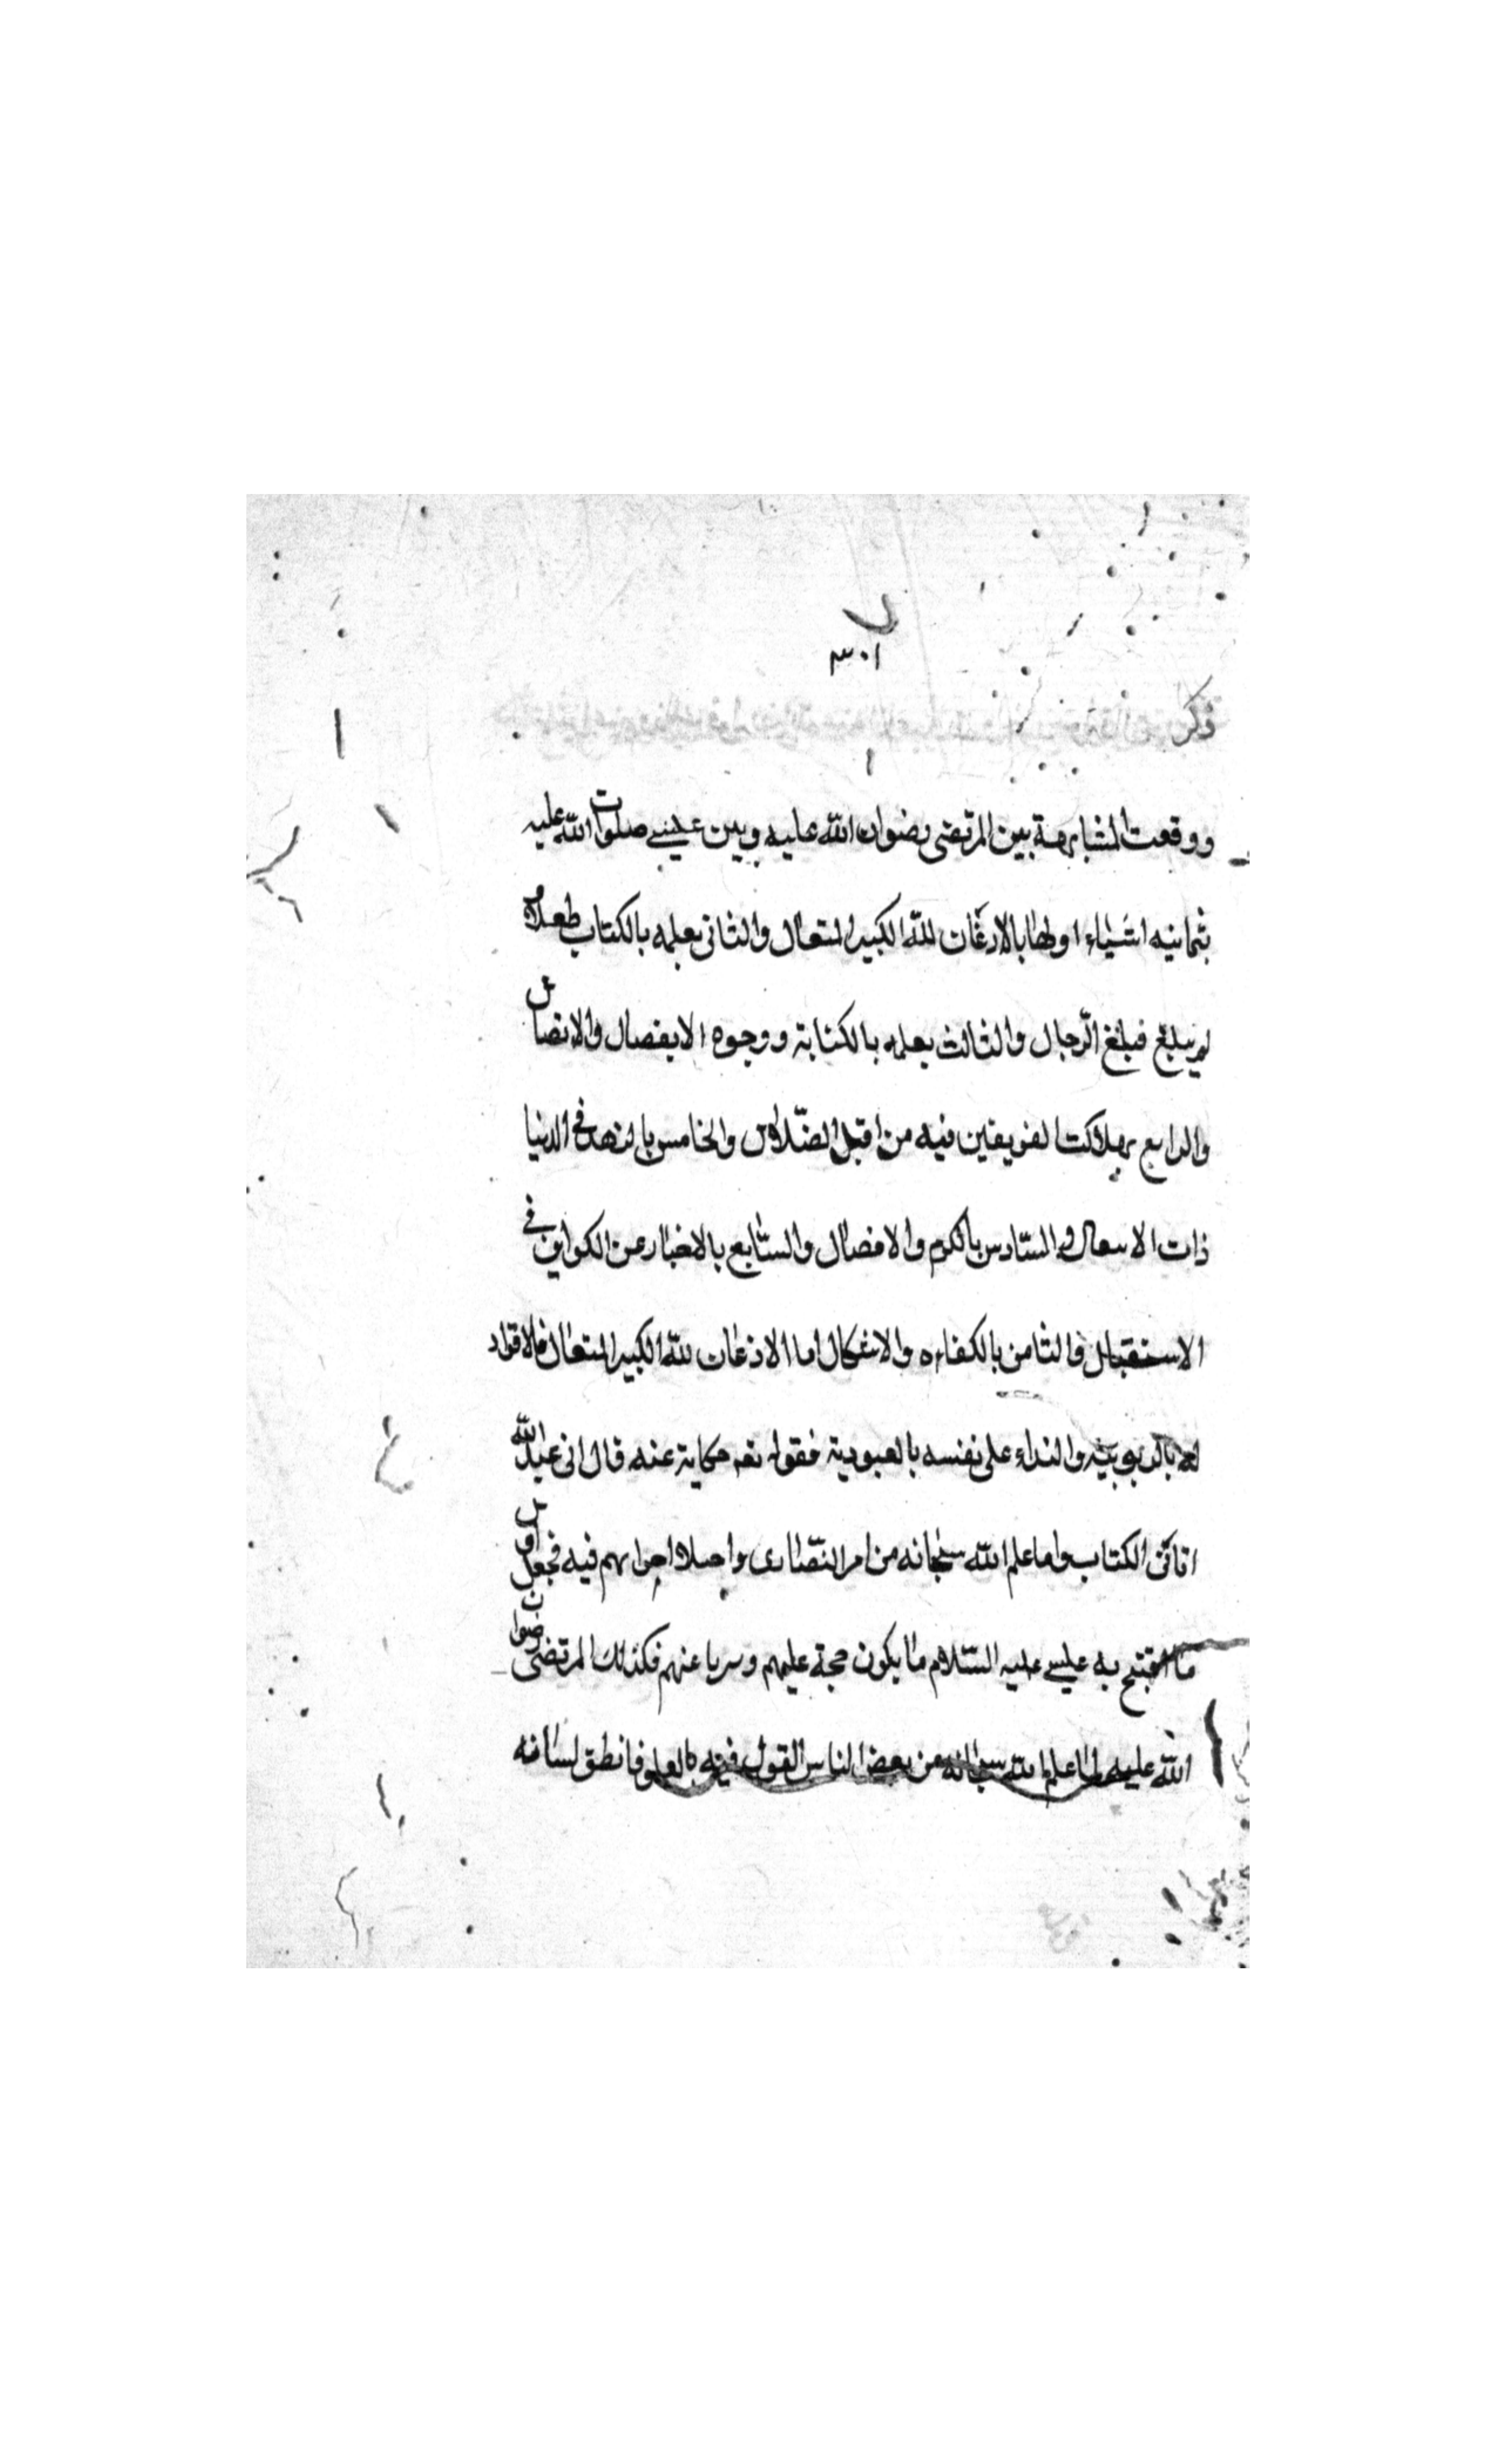 ٣٠١
ذكر
ووقعت المشابهة بين المرتضى رضوان الله عليه وبين عيسى صلوات الله عليه
بثمانيه اشياء اولها بالاذعان لله الكبير المتعال والثانى بعلمه بالكتاب طفلا و
لم يبلغ مبلغ الرجال والثالث بعلمه بالكتابة ووجوه الانفصال والاتصال
والرابع بهلاك الفريقين فيه من اهل الضلال والخامس بالزهد فى الدنيا
ذات والسادس بالكرم والافضال والسابع بالاخبار عن الكواين فى
الاستقبال والثامن بالكفاءه والاشكال اما الاذعان لله الكبير المتعال فالاقرار
له بالربوبيته والنداء على نفسه بالعبودية فقوله تعه حكاية عنه قال انى عبد الله
اتانى الكتاب ولما علم الله سبحانه من امر النصارى فيه فجعل اول
ما افتتح به عيسى عليه السلام ما يكون حجة عليهم وردا عنهم فكذلك المرتضى رضوان
الله عليه لما علم الله سبحانه من بعض الناس القول فيه بالعلو فانطق لسانه